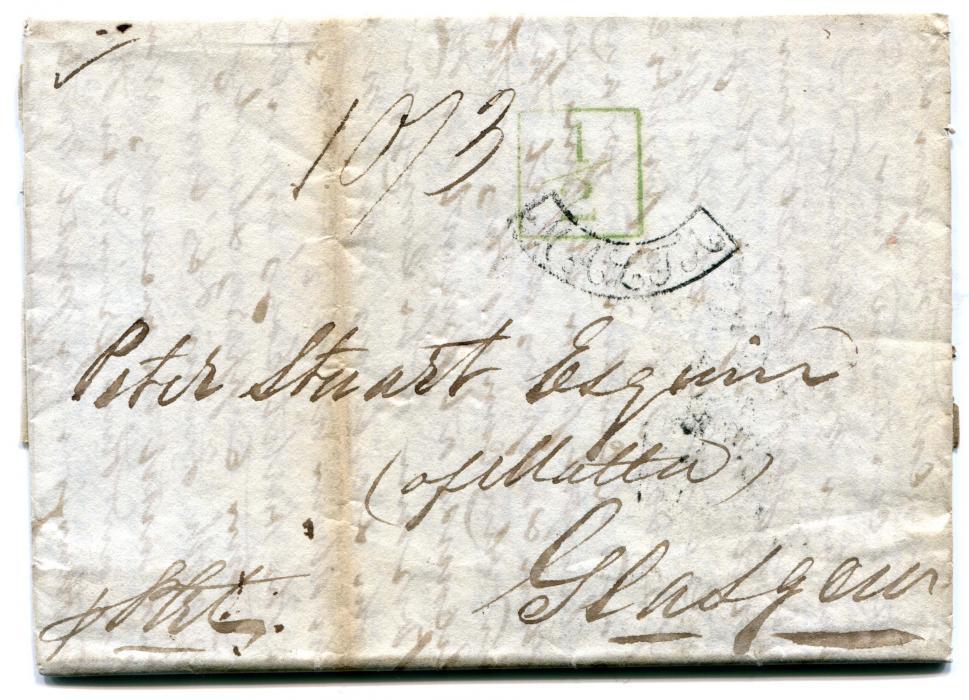 10/3
1/2
MALTA
Peter Stuart Esquire
(of Malta)
Glasgow